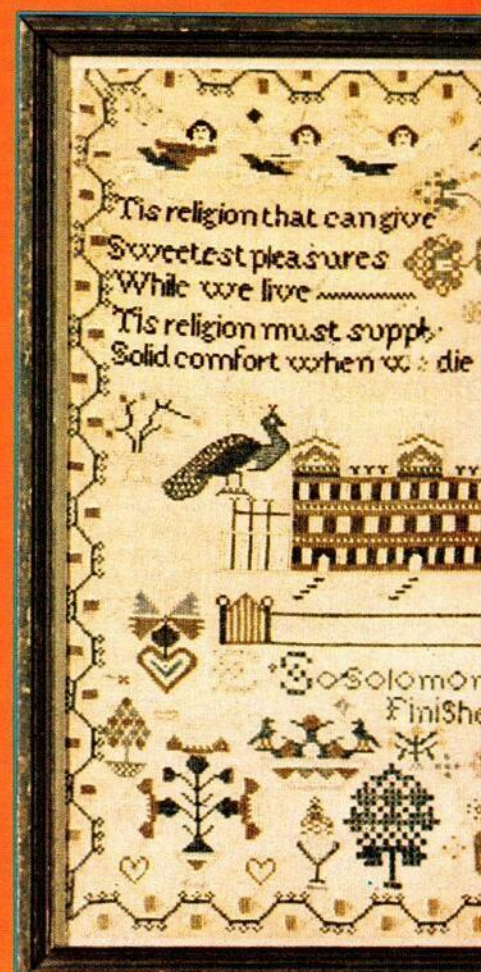 'Tis religion that can give
Sweetest pleasures
While we live
'Tis religion must supply
Solid comfort when we die
So Solomon
Finishe